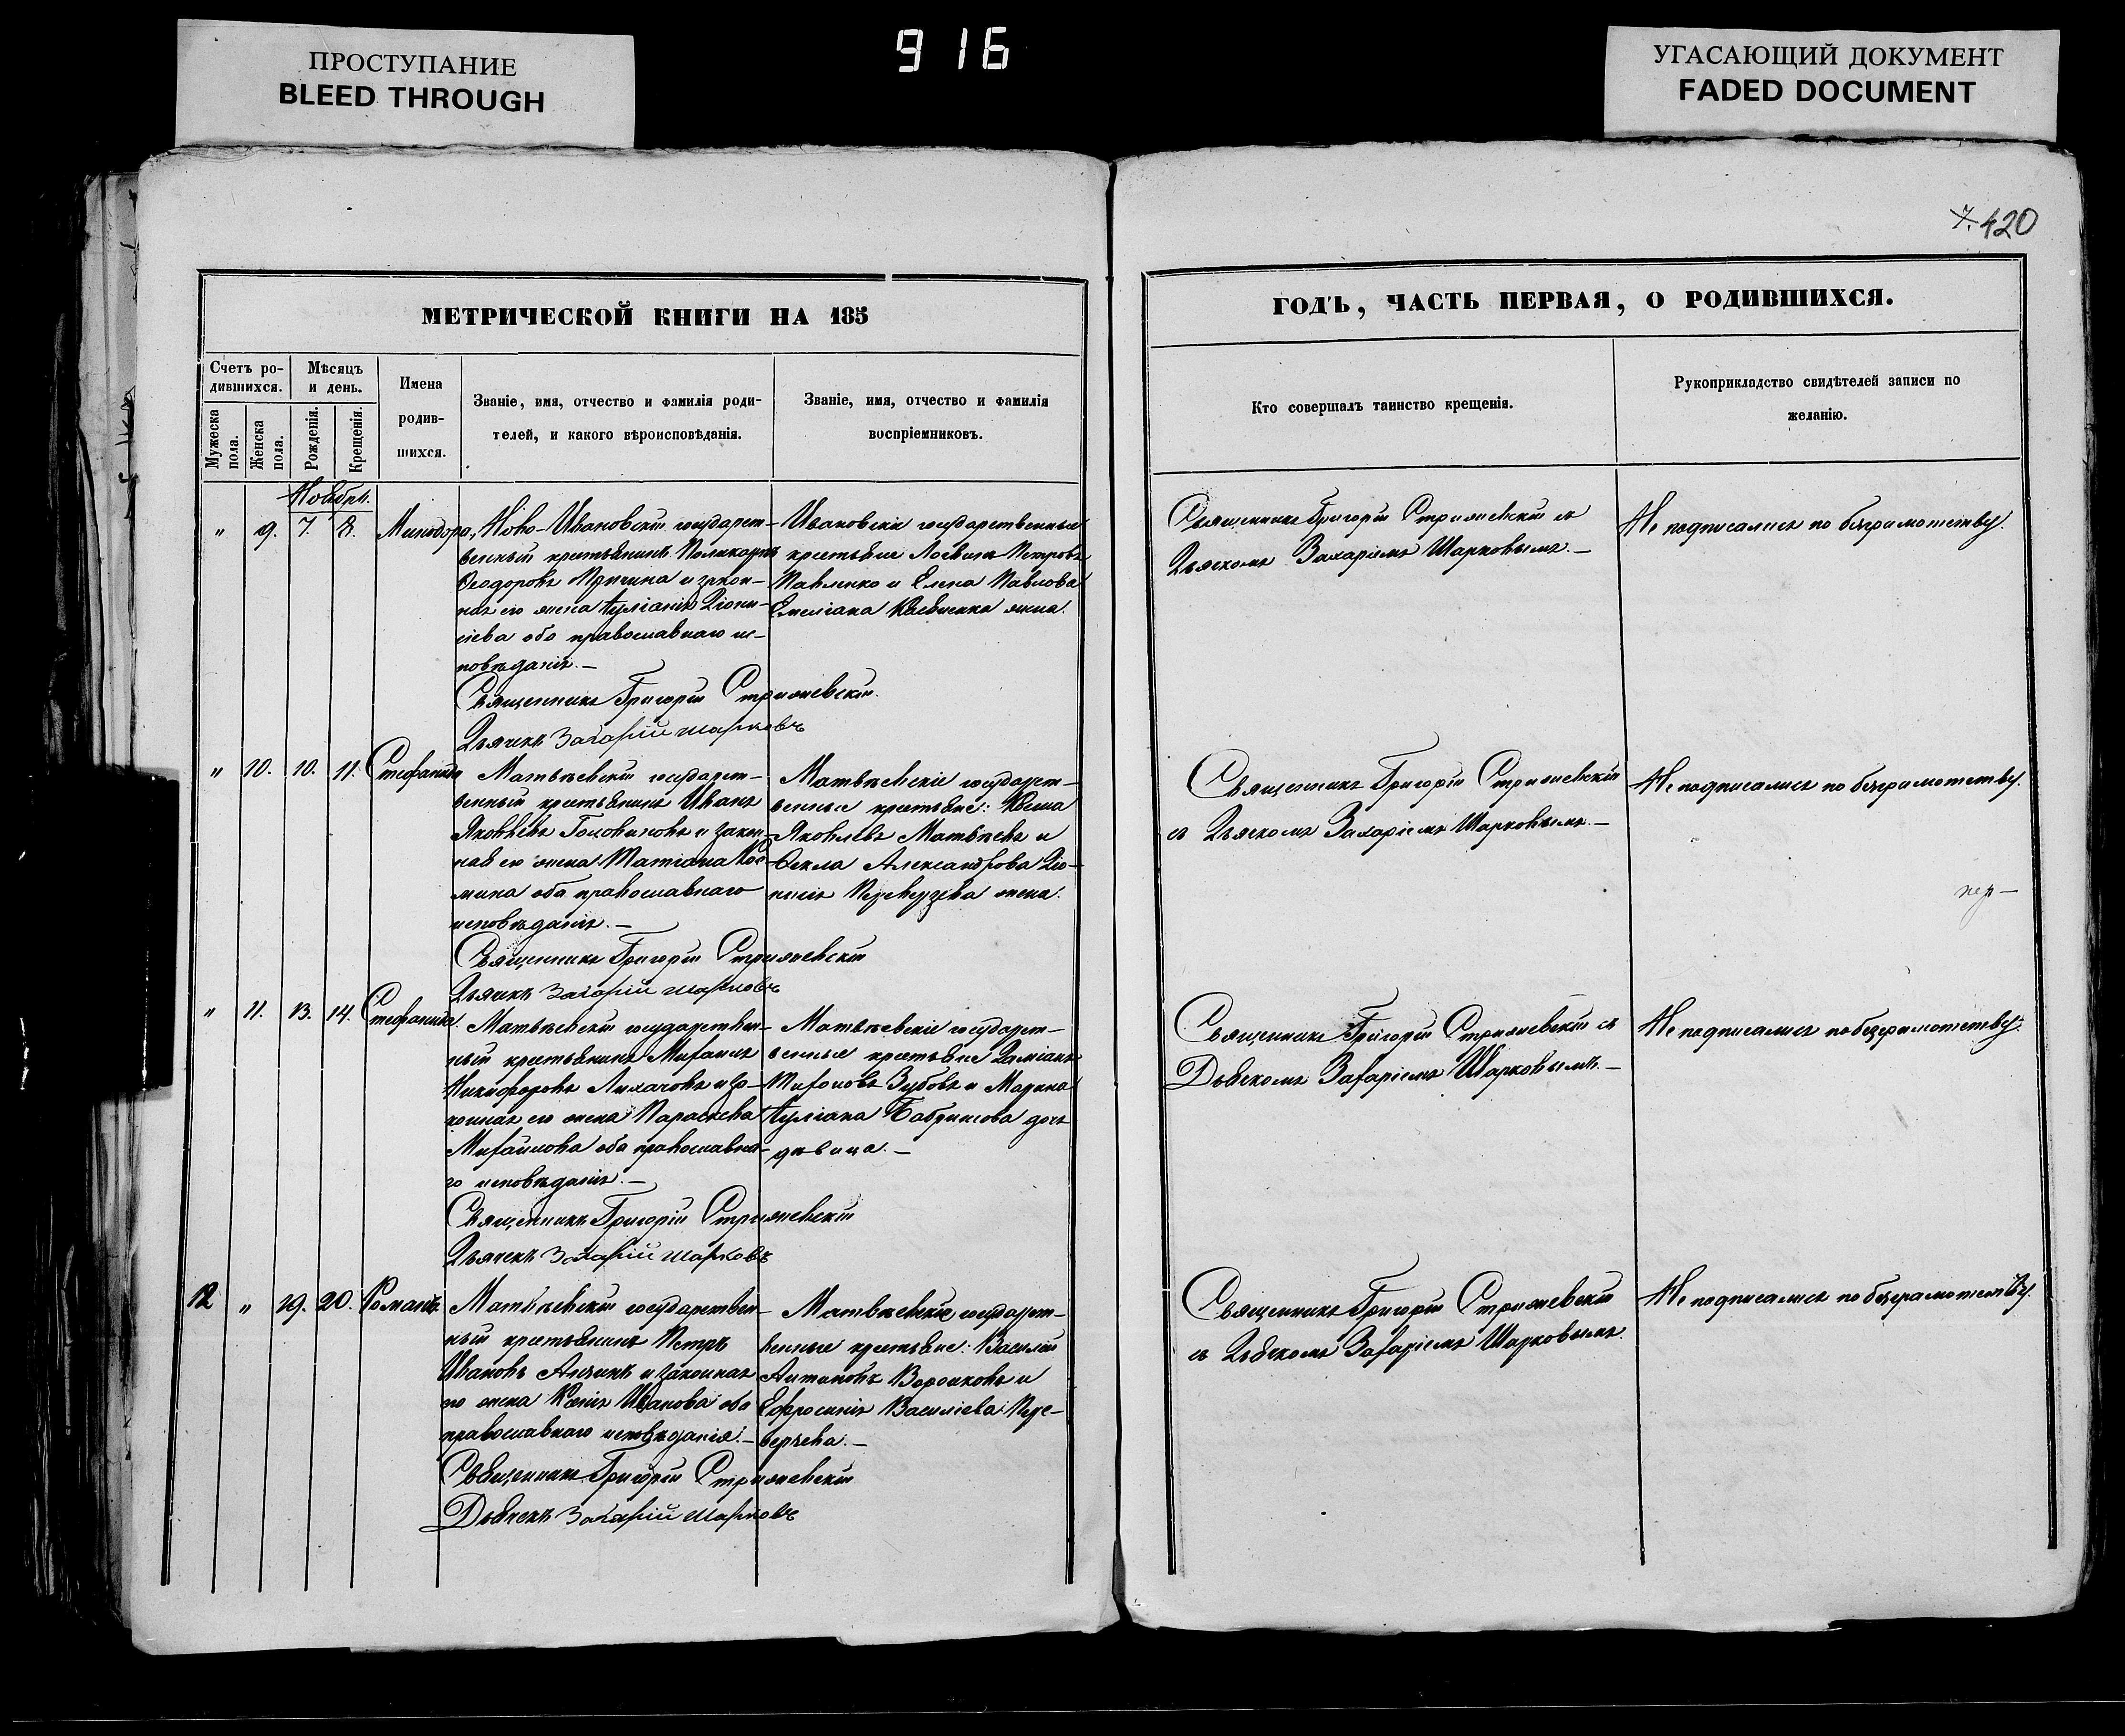 ПРОСТУПАНИЕ
BLEED THROUGH
916
УГАСАЮЩИЙ ДОКУМЕНТ
FADED DOCUMENT
420
МЕТРИЧЕСКОЙ КНИГИ НА 185
Счетъ ро-
дившихся.
Мужеска
пола.
Женска
пола.
Мѣсяцъ
и день.
Рожденія.
Крещенія.
Имена
родив-
шихся.
Званіе, имя, отчество и фамилія роди-
телей, и какого вѣроисповѣданія.
Званіе, имя, отчество и фамилія
воспріемниковъ.
ГОДЪ, ЧАСТЬ ПЕРВАЯ, О РОДИВШИХСЯ.
Кто совершалъ таинство крещенія.
Рукоприкладство свидѣтелей записи по
желанію.
Ноября.
" 9. 7. 8.
Минодора
Ново-Ивановскій государст-
венный крестьянинъ Поликарпъ
Ѳеодоровъ и закон-
ная его жена Іуліанія Діони-
сіева оба православнаго ис-
повѣданія.—
Священникъ Григорій Стрижевскій.
Дьячекъ Захарій Шарковъ
Ивановскіе государственные
крестьяне Петровъ
Павленко и Елена Павлова
Емеліана жена.
Священникъ Григорій Стрижевскій съ
Дьячкомъ Захаріемъ Шарковымъ.—
Не подписались по безграмотству.
" 10. 10. 11.
Стефанида
Матвѣевскій государст-
венный крестьянинъ Иванъ
Яковлевъ и закон-
ная его жена Татіана Кос-
мина оба православнаго
исповѣданія.—
Священникъ Григорій Стрижевскій
Дьячекъ Захарій Шарковъ
Матвѣевскіе государст-
венные крестьяне:
Яковлевъ Матвѣевъ и
Ѳекла Александрова Діо-
нисія жена.
Священникъ Григорій Стрижевскій
съ Дьячкомъ Захаріемъ Шарковымъ.—
Не подписались по безграмотству.
" 11. 13. 14.
Стефанида.
Матвѣевскій государствен-
ный крестьянинъ Михаилъ
Никифоровъ Лихачовъ и за-
конная его жена Параскева
Михайлова оба православна-
го исповѣданія.—
Священникъ Григорій Стрижевскій
Дьячекъ Захарій Шарковъ
Матвѣевскіе государст-
венные крестьяне Даміанъ
Зубовъ и Марина
Іуліана дочь
дѣвица.—
Священникъ Григорій Стрижевскій съ
Дьячкомъ Захаріемъ Шарковымъ.—
Не подписались по безграмотству.
12 " 19. 20.
Романъ
Матвѣевскій государствен-
ный крестьянинъ Петръ
Ивановъ и законная
его жена Ксенія Иванова оба
православнаго исповѣданія.—
Священникъ Григорій Стрижевскій
Дьячекъ Захарій Шарковъ
Матвѣевскіе государст-
венные крестьяне: Василій
Антиповъ и
Евфросинія Василіева Пере-
верзева.—
Священникъ Григорій Стрижевскій
съ Дьячкомъ Захаріемъ Шарковымъ.
Не подписались по безграмотству.